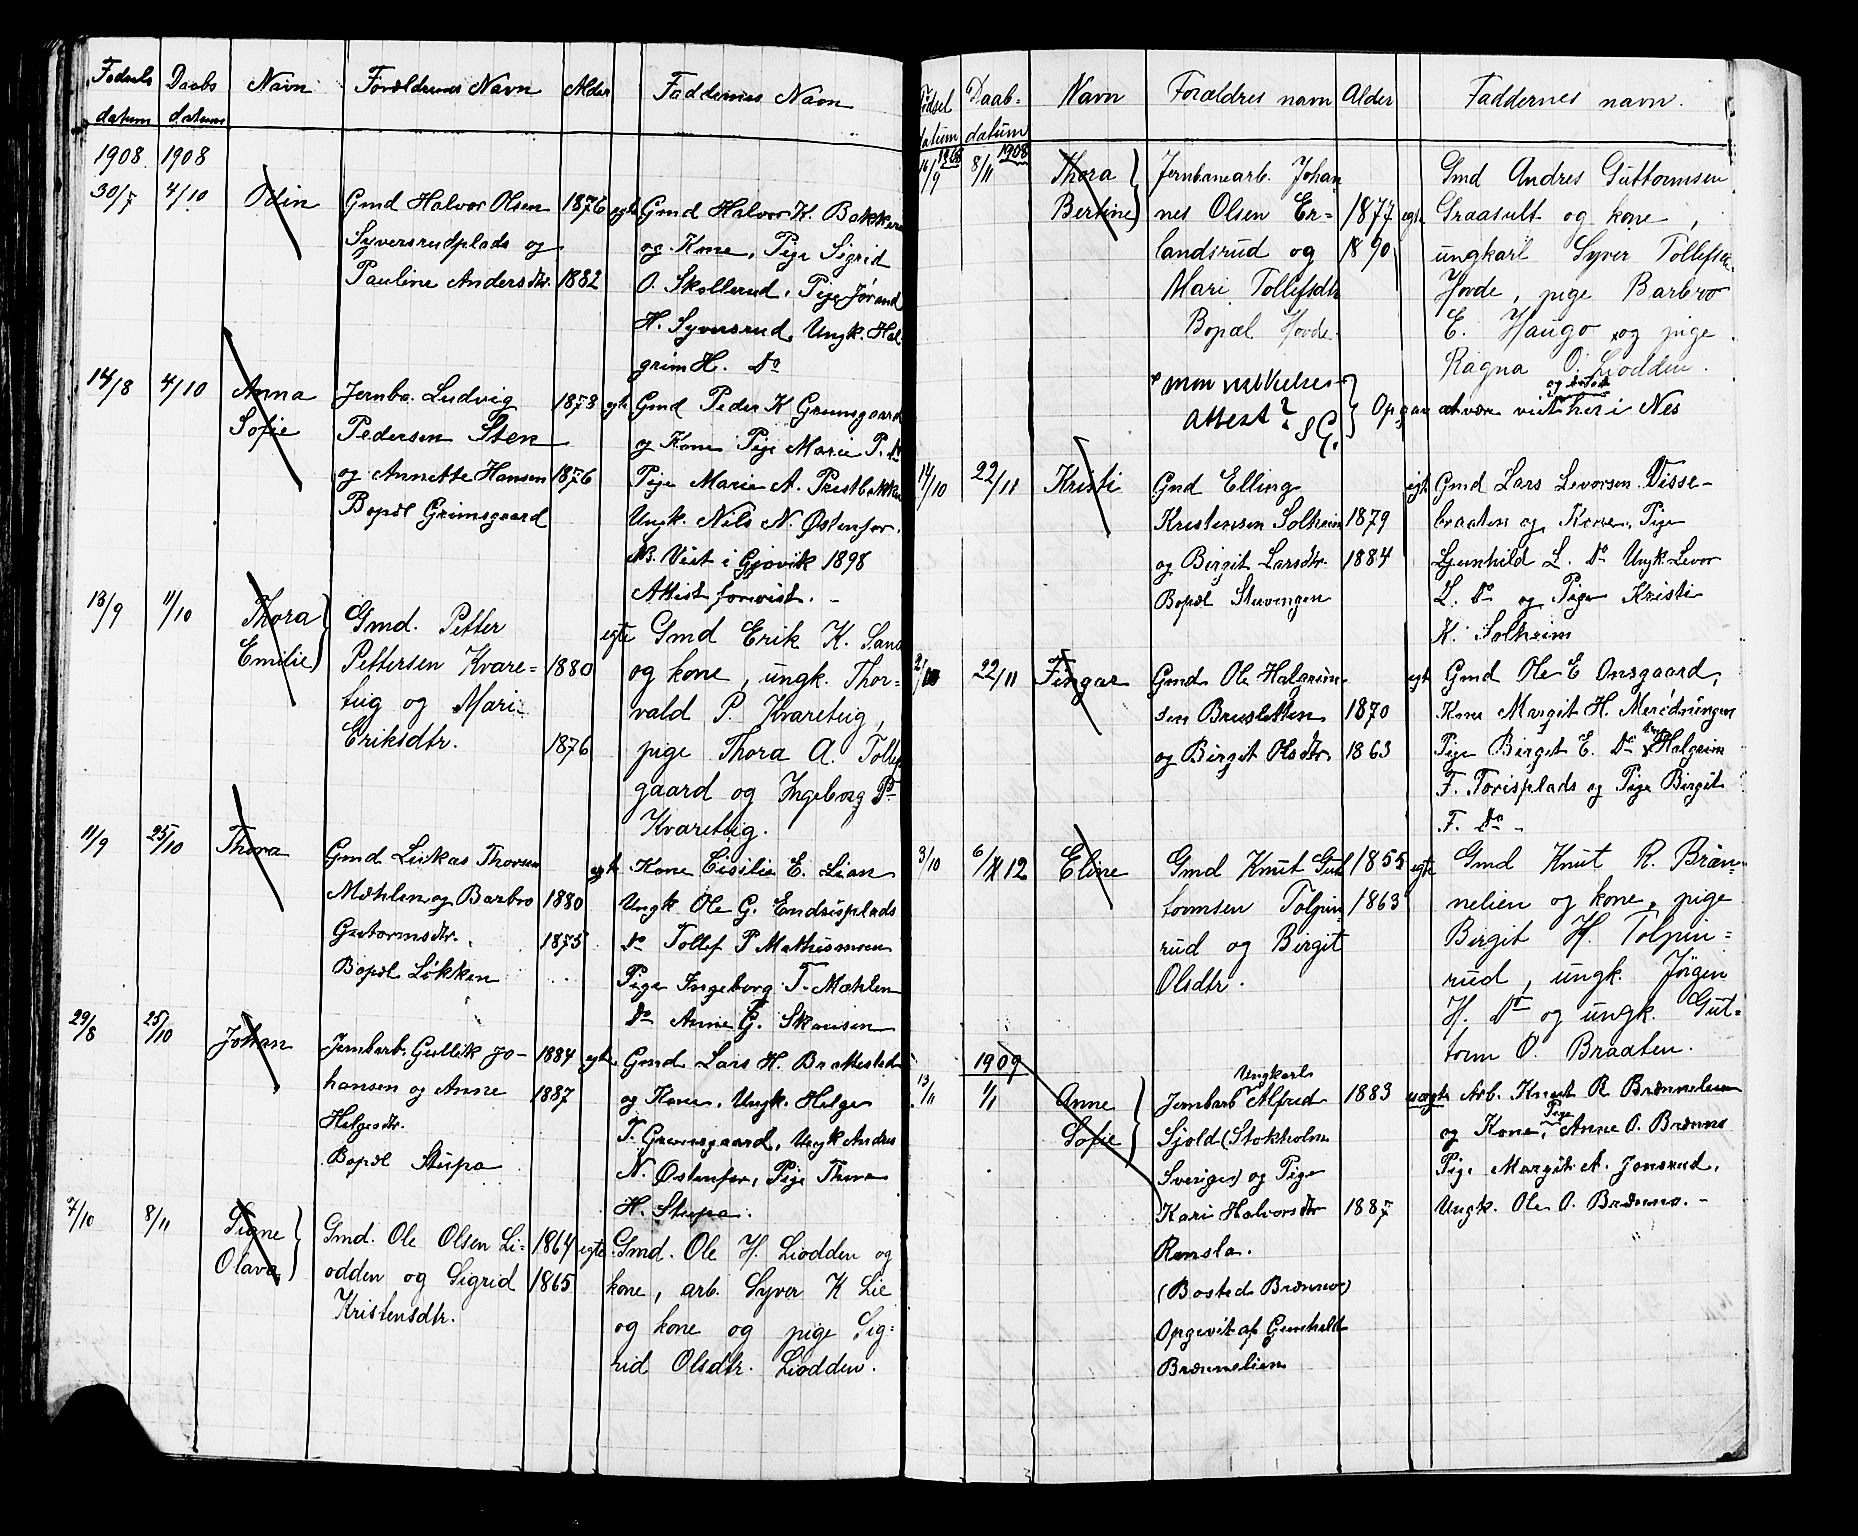 Fødsels Daabs Navn Forældrenes Navn Alder Faddernes Navn
datum datum
1908 1908
30/7 4/10 Odin Gmd Halvor Olsen 1876 egte Gmd Halvor K. Bakken
Syversrudplads og og Kone, Pige Sigrid
Pauline Andersdtr. 1882 O. Skollerud, Pige Jørand
H. Syversrud, Ungk. Hal-
grim H. Do
14/8 4/10 Anna Jernba. Ludvig 1873 egte Gmd Peder K Grimsgaard
Sofie Pedersen Sten og Kone Pige Marie P. do
og Annette Hansen 1876 Pige Marie A. Prestbakke
Bopæl Grimsgaard Ungk. Nils N. Østenfor.
NB. Viet i Gjøvik 1898
Attest forevist. -
13/9 11/10 Thora Gmd. Petter egte Gmd Erik K. Sand
Emilie Pettersen Kvare= 1880 og kone, ungk. Thor=
tug og Mari vald P. Kvaretug,
Eriksdtr. 1876 pige Thora A. Tolle
gaard og Ingeborg P.
Kvaretug.
11/9 25/10 Thora Gmd Lukas Thorsen egte Kone Cisilie E. Lian
Mæhlen og Barbro 1880 Ungk Ole G. Endrisplads
Guttormsdtr. 1875 do Tollef P Mathismoen
Bopæl Løkken Pige Ingeborg T. Mæhlen
Do Anne G. Skansen
29/8 25/10 Johan Jernbarb. Gullik Jo- 1884 egte Gmd Lars H. Brattested
hansen og Anne 1887 og Kone, Ungk. Helge
Helgesdtr. T. Grimsgaard, Ungk Andres
Bopæl Stupa N. Østenfor, Pige Thora
H. Stupa.
7/10 8/11 Signe Gmd. Ole Olsen Li- 1864 egte Gmd. Ole H. Liodden og
Olava odden og Sigrid 1865 kone, arb. Syver K Lie
Kristensdtr. og kone og pige Sig=
rid Olsdtr. Liodden.
Fødsel Daab- Navn Forældres navn Alder Faddernes navn.
datum datum
1908 1908
16/9 8/11 Thora Jernbanearb. Johan Gmd Andres Guttormsen
Bertine nes Olsen Er= 1877 egte Graasult og kone,
landsrud og 1890 ungkarl Syver Tollefsen
Mari Tollefsdtr Hovde, pige Barbro
Bopæl Hovde. E. Haugo og pige
Ragna O. Liodden.
mon vielses og
attest? SG. Opgav at være viet her i Nes
14/10 22/11 Kristi Gmd Elling egte Gmd Lars Levorsen Disse-
Kristensen Solheim 1879 braaten og Kone, Pige
og Birgit Larsdtr. 1884 Gunhild L. Do Ungk. Levor
Bopæl Stuvengen L. Do og Pige Kristi
K. Solheim
2/10 22/11 Fingar Gmd. Ole Halgrim- egte Gmd Ole E Onsgaard,
sen Brusletten 1870 Kone Margit H.
og Birgit Olsdtr. 1863 Pige Birgit E. Do Halgrim
F. Torisplads og Pige Birgit
F. Do -
3/10 6/12 Eline Gmd Knut Gut 1855 egte Gmd Knut R. Bræn-
tormsen Tolpin 1863 nelien og kone, pige
rud og Birgit Birgit H. Tolpin=
Olsdtr. rud, ungk. Jørgen
H. Do og ungk. Gut=
torm O. Braaten.
1909
13/11 1/1 Anne Ungkarl
Jernbarb Alfred 1883 uægte Arb. Knut R Brænnelien
Sofie Sjold (Stokholm og Kone, Pige Anne O. Brænno
Sverige) og Pige Pige Margit A. Jonsrud.
Kari Halvorsdtr 1887 Ungk. Ole O. Brænno. -
Ramsla.
(Bosted Brænno)
Opgevit af Gunhild
Brænnelien